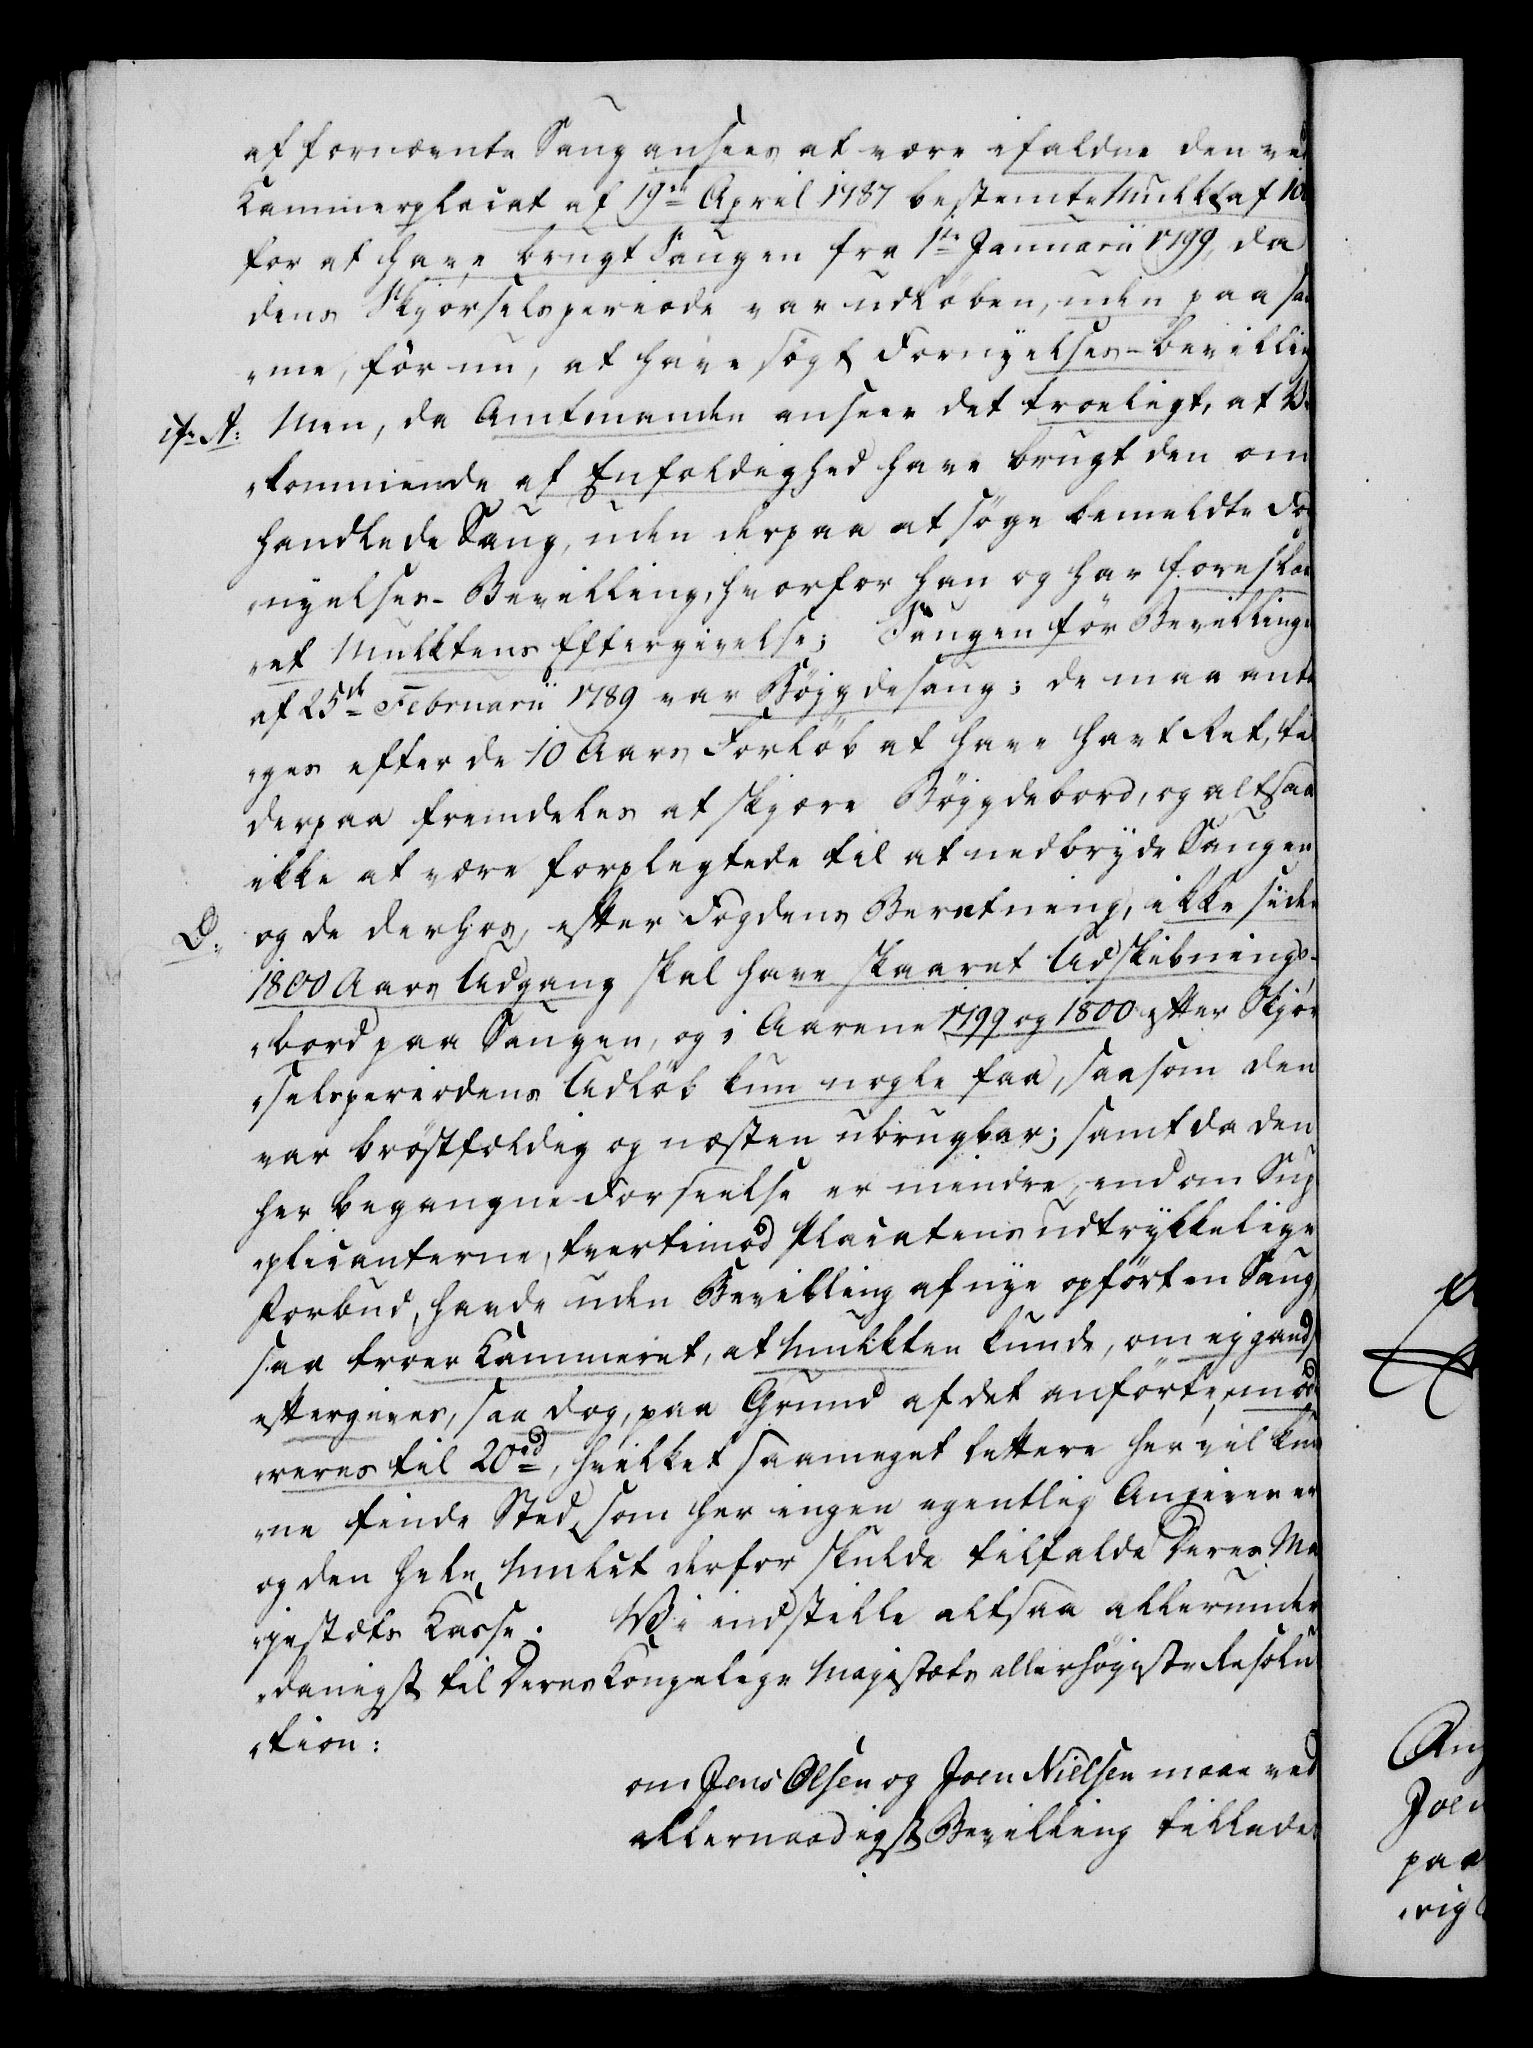 af fornævnte Saug ansees at være ifaldne den ved
Kammerplacat af 19de April 1787 bestemte Mulkt af 10
for at have brugt Saugen fra 1te Januarii 1799, da
dens Skjørselsperiode var udløben, uden paa sa
„me, før nu, at have søgt Fornyelses-bevilling
cfr. A: Men, da Amtmanden anseer det troeligt, at V
„kommende af Enfoldighed have brugt den om
handlede Saug, uden derpaa at søge bemeldte For
„nyelses- Bevilling, hvorfor han og har foreslaa
„et Mulktens Eftergivelse; Saugen før Bevillinge
af 25de Februarii 1789 var Bøygdesaug; de maa anta
„ges efter de 10 Aars Forløb at have havt Ret, til
derpaa fremdeles at skjære Bøygdebord, og altsaa
ikke at være forpligtede til at nedbryde Saugen
D. og de derhos, efter Fogdens Beretning, ikke siden
1800 Aars Udgang skal have skaaret Udskibnings-
„bord paa Saugen, og i Aarene 1799 og 1800 efter Skjør
„selsperiodens Udløb kun nogle faa, saasom den
var brøstfældig og næsten ubrugbar; samt da den
her begangne Forseelse er mindre, end om Sup
„plicanterne, tvertimod Placatens udtrykkelige
Forbud, havde uden Bevilling af nye opført en Saug,
saa troer Kammeret, at Mulkten kunde, om ej gand
eftergives, saa dog, paa Grund af det anførte, mode
„reres til 20 rd, hvilket saameget lettere her vil kun
„ne finde Sted, som her ingen egentlig Angiver er
og den hele Mulct derfor skulde tilfalde Deres Ma
„jestæts Kasse. Vi indstille altsaa allerunder
„danigst til Deres Kongelige Majestæts allerhøjeste Resolu
„tion:
om Jens Olsen og Joen Nielsen maae ved
allernaadigst Bevilling tillades
Joe
paa
„rig